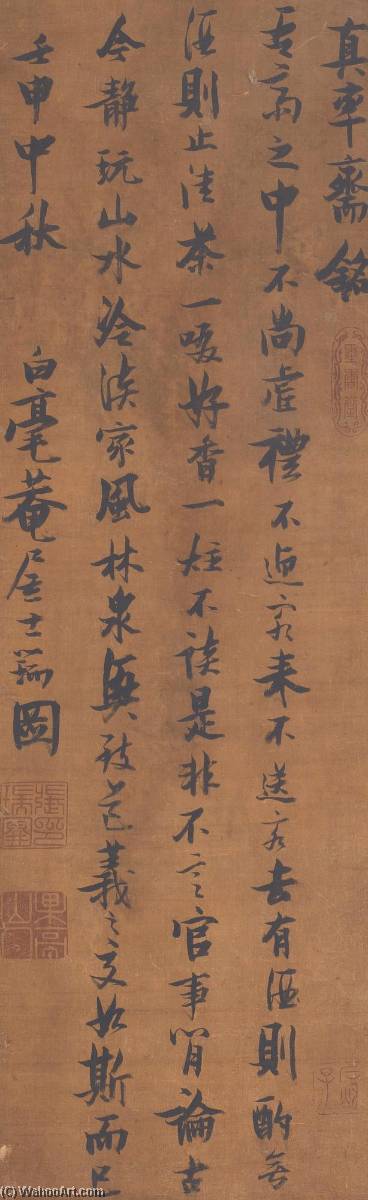 真率齋銘
吾齋之中不尚虛禮不迎客来不送客去有酒則酌無
酒則止清茶一啜好香一炷不談是非不言官事閒論古
今静玩山水冷淡家風林泉興致道義之交如斯而已
壬申中秋 白毫菴居士瑞圖
果亭山人
(c) WahooArt.com